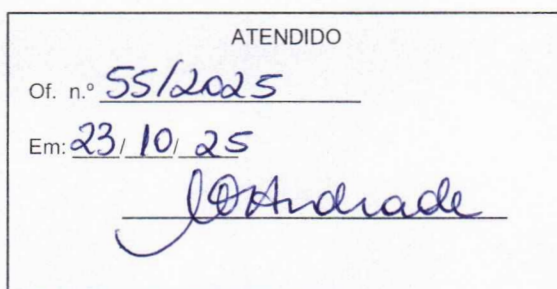 ATENDIDO
Of. n.º 55/2025
Em: 23/ 10/ 25
Andrade